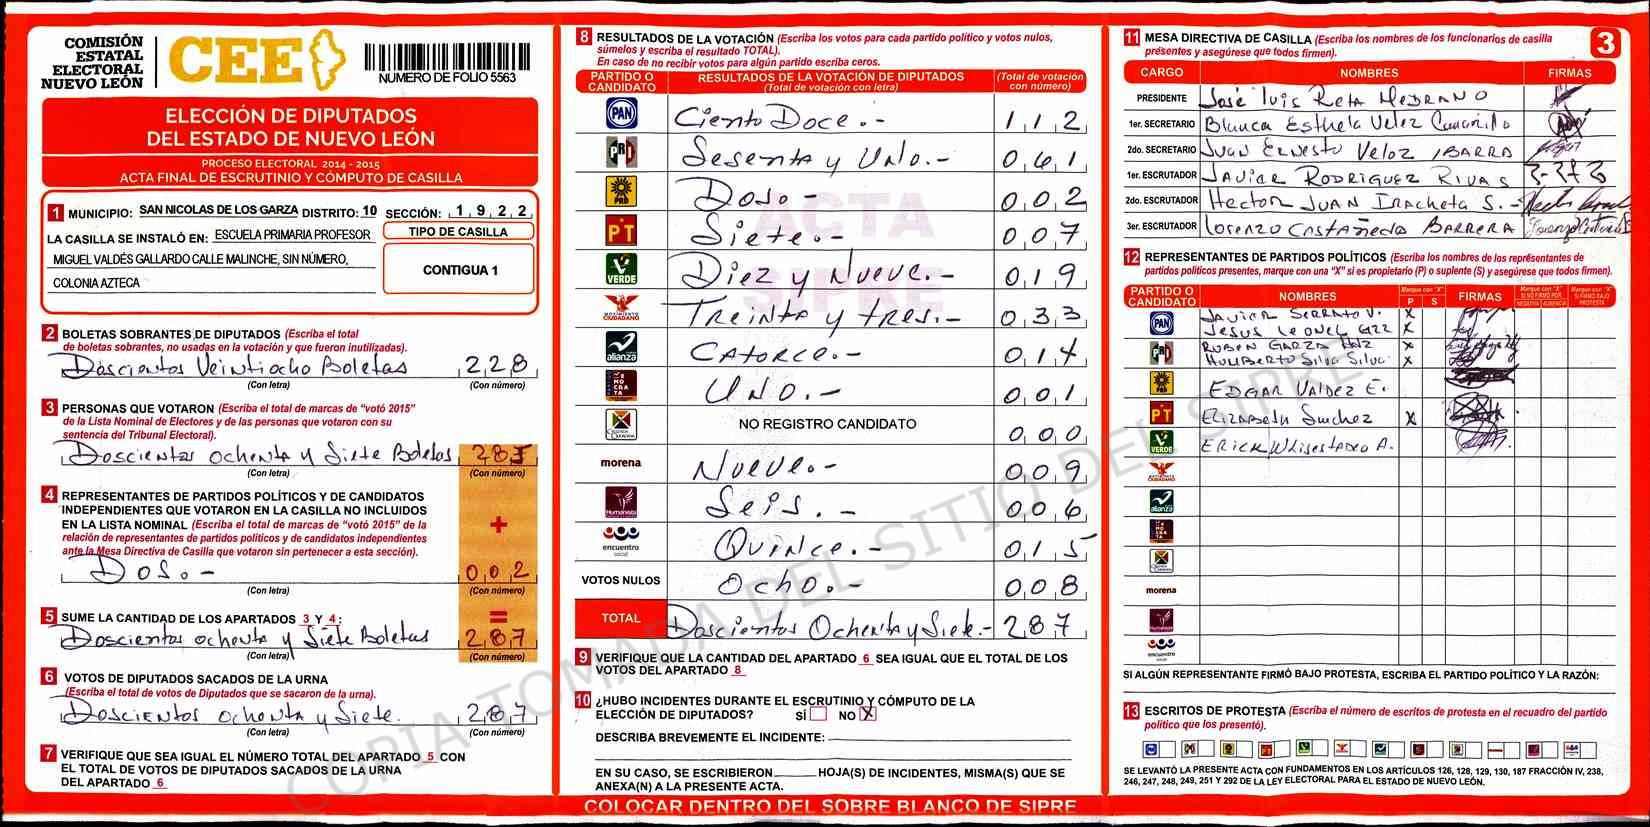 COMISIÓN
ESTATAL
ELECTORAL
NUEVO LEÓN
CEE
NUMERO DE FOLIO 5563
ELECCIÓN DE DIPUTADOS
DEL ESTADO DE NUEVO LEÓN
PROCESO ELECTORAL 2014 - 2015
ACTA FINAL DE ESCRUTINIO Y CÓMPUTO DE CASILLA
1 MUNICIPIO: SAN NICOLAS DE LOS GARZA DISTRITO: 10 SECCIÓN: 1922
LA CASILLA SE INSTALÓ EN: ESCUELA PRIMARIA PROFESOR
MIGUEL VALDÉS GALLARDO CALLE MALINCHE, SIN NÚMERO,
COLONIA AZTECA
TIPO DE CASILLA
CONTIGUA 1
2 BOLETAS SOBRANTES DE DIPUTADOS (Escriba el total
de boletas sobrantes, no usadas en la votación y que fueron inutilizadas).
Doscientos Veintiocho Boletas 228
(Con letra) (Con número)
3 PERSONAS QUE VOTARON (Escriba el total de marcas de "votó 2015"
de la Lista Nominal de Electores y de las personas que votaron con su
sentencia del Tribunal Electoral).
Doscientas Ochenta y Siete Boletas 285
(Con letra) (Con número)
4 REPRESENTANTES DE PARTIDOS POLÍTICOS Y DE CANDIDATOS
INDEPENDIENTES QUE VOTARON EN LA CASILLA NO INCLUIDOS
EN LA LISTA NOMINAL (Escriba el total de marcas de "votó 2015" de la
relación de representantes de partidos políticos y de candidatos independientes
ante la Mesa Directiva de Casilla que votaron sin pertenecer a esta sección).
+
Dos.- 002
(Con letra) (Con número)
=
5 SUME LA CANTIDAD DE LOS APARTADOS 3 Y 4:
Doscientas ochenta y Siete Boletas 287
(Con letra) (Con número)
6 VOTOS DE DIPUTADOS SACADOS DE LA URNA
(Escriba el total de votos de Diputados que se sacaron de la urna).
Doscientos ochenta y Siete. 287
(Con letra) (Con número)
7 VERIFIQUE QUE SEA IGUAL EL NÚMERO TOTAL DEL APARTADO 5 CON
EL TOTAL DE VOTOS DE DIPUTADOS SACADOS DE LA URNA
DEL APARTADO 6
8 RESULTADOS DE LA VOTACIÓN (Escriba los votos para cada partido político y votos nulos,
súmelos y escriba el resultado TOTAL).
En caso de no recibir votos para algún partido escriba ceros.
PARTIDO O CANDIDATO RESULTADOS DE LA VOTACIÓN DE DIPUTADOS (Total de votación con letra) (Total de votación con número)
PAN Ciento Doce.- 112
PRI Sesenta y Uno.- 061
PRD Doso- 002
PT Siete.- 007
VERDE Diez y Nueve.- 019
MOVIMIENTO CIUDADANO Treinta y tres.- 033
alianza Catorce.- 014
DEMOCRATA Uno.- 001
NO REGISTRO CANDIDATO 000
morena Nueve.- 009
Humanista Seis.- 006
encuentro social Quince.- 015
VOTOS NULOS Ocho.- 008
TOTAL Doscientos Ochenta y Siete.- 287
9 VERIFIQUE QUE LA CANTIDAD DEL APARTADO 6 SEA IGUAL QUE EL TOTAL DE LOS
VOTOS DEL APARTADO 8
10 ¿HUBO INCIDENTES DURANTE EL ESCRUTINIO Y CÓMPUTO DE LA
ELECCIÓN DE DIPUTADOS? SÍ NO X
DESCRIBA BREVEMENTE EL INCIDENTE:
EN SU CASO, SE ESCRIBIERON HOJA(S) DE INCIDENTES, MISMA(S) QUE SE
ANEXA(N) A LA PRESENTE ACTA.
COLOCAR DENTRO DEL SOBRE BLANCO DE SIPRE
11 MESA DIRECTIVA DE CASILLA (Escriba los nombres de los funcionarios de casilla
presentes y asegúrese que todos firmen).
3
CARGO NOMBRES FIRMAS
PRESIDENTE José Luis Reta Medrano
1er. SECRETARIO Blanca Esthela Velez Camarillo
2do. SECRETARIO Juan Ernesto Veloz Ibarra
1er. ESCRUTADOR Javier Rodriguez Rivas
2do. ESCRUTADOR Hector Juan Iracheta S.-
3er. ESCRUTADOR Lorenzo Castañeda Barrera
12 REPRESENTANTES DE PARTIDOS POLÍTICOS (Escriba los nombres de los representantes de
partidos políticos presentes, marque con una "X" si es propietario (P) o suplente (S) y asegúrese que todos firmen).
PARTIDO O CANDIDATO NOMBRES Marque con "X" P S FIRMAS Marque con "X" SI NO FIRMÓ POR: NEGATIVA AUSENCIA Marque con "X" SI FIRMÓ BAJO PROTESTA
PAN Javier Serrato V. X
Jesus Leonel Gzz X
PRI Ruben Garza Hdz X
Humberto Silva Silva X
PRD Edgar Valdez E.
PT Elizabeth Sanchez X
VERDE Erick
MOVIMIENTO CIUDADANO
alianza
morena
Humanista
encuentro social
SI ALGÚN REPRESENTANTE FIRMÓ BAJO PROTESTA, ESCRIBA EL PARTIDO POLÍTICO Y LA RAZÓN:
13 ESCRITOS DE PROTESTA (Escriba el número de escritos de protesta en el recuadro del partido
político que los presentó).
SE LEVANTÓ LA PRESENTE ACTA CON FUNDAMENTOS EN LOS ARTÍCULOS 126, 128, 129, 130, 187 FRACCIÓN IV, 238,
246, 247, 248, 249, 251 Y 292 DE LA LEY ELECTORAL PARA EL ESTADO DE NUEVO LEÓN.
ACTA
SIPRE
COPIA TOMADA DEL SITIO DEL SIPRE